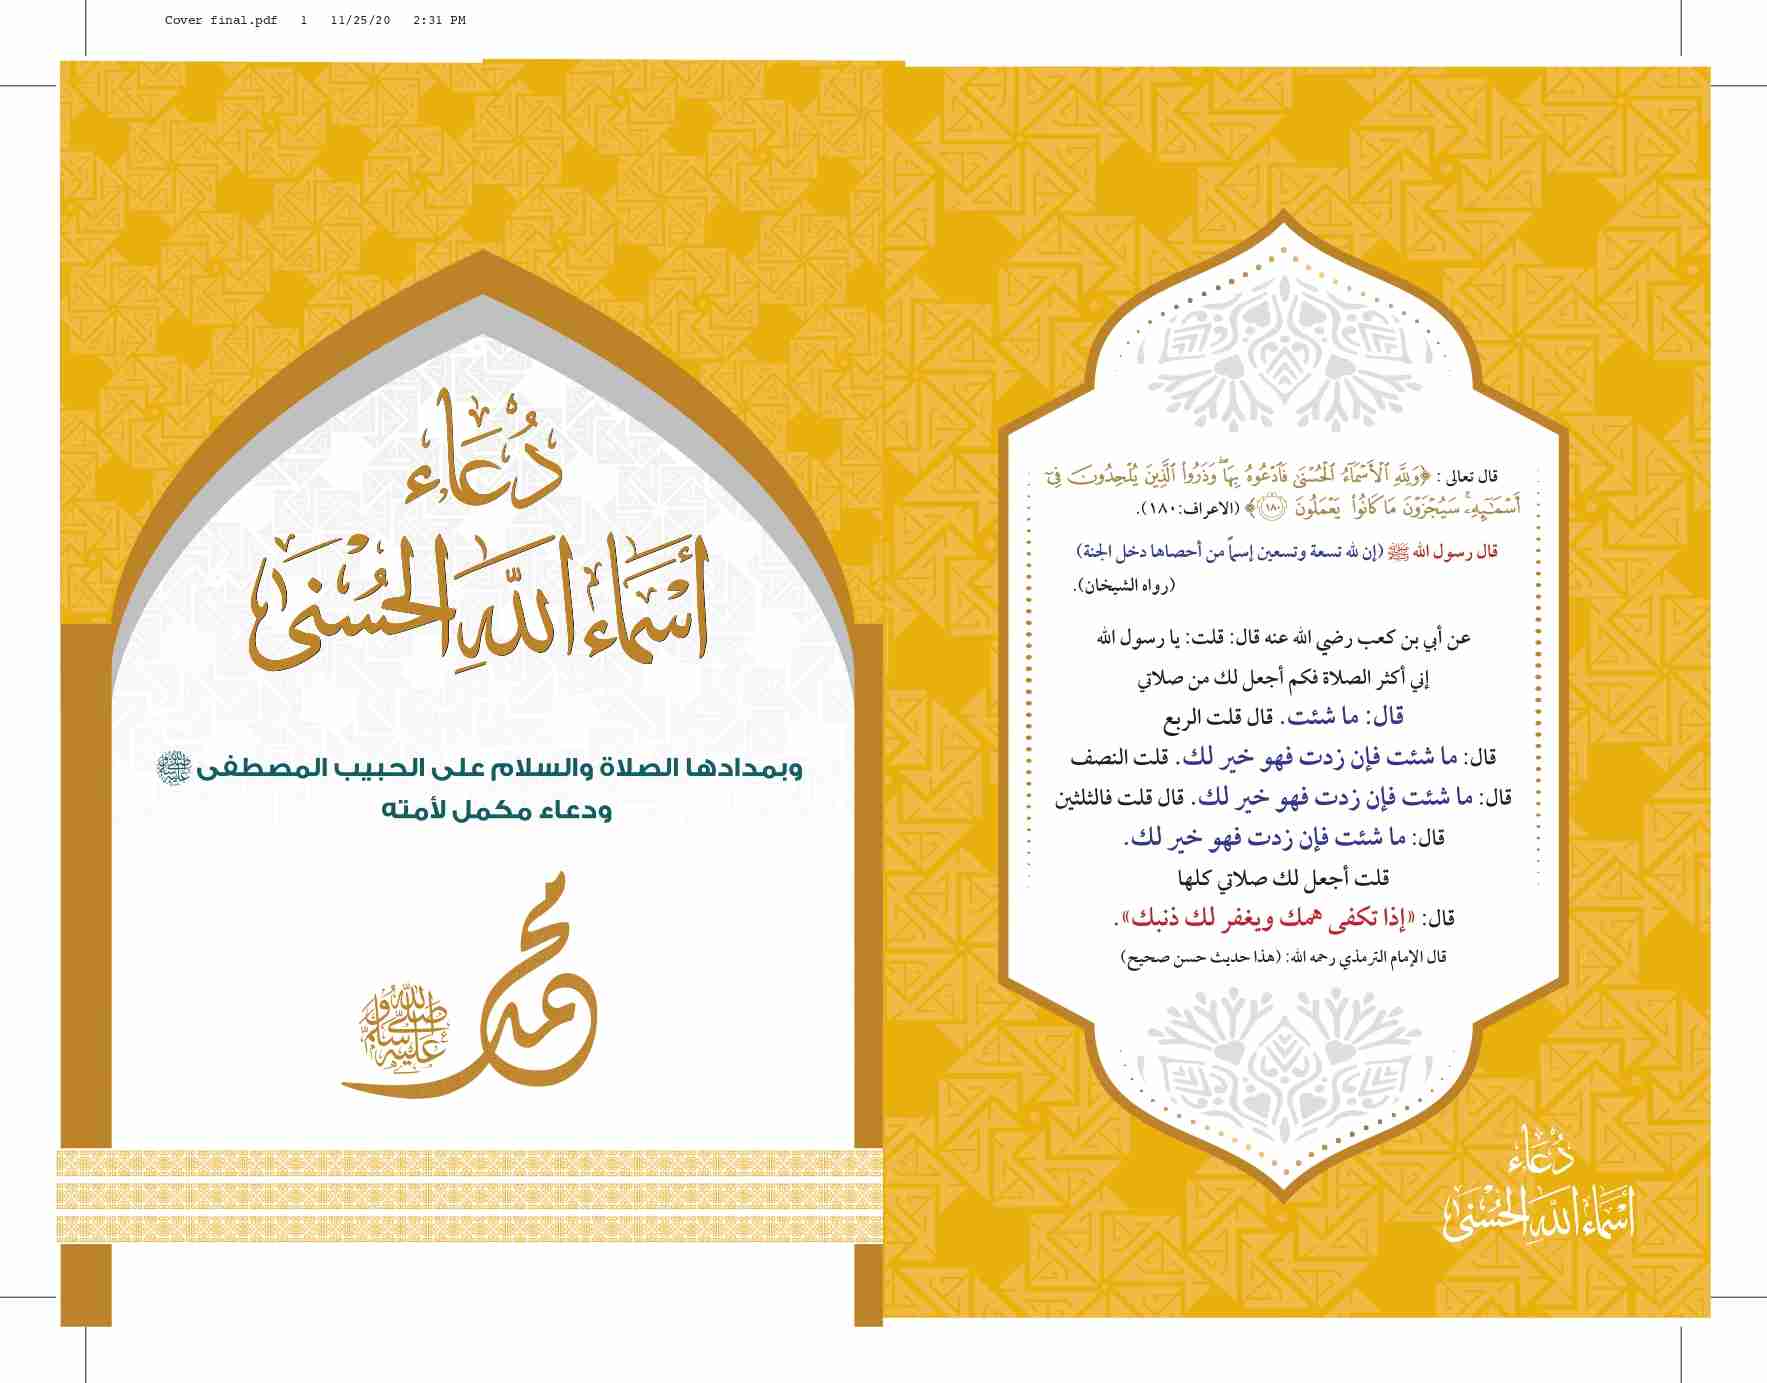 Cover final.pdf 1 11/25/20 2:31 PM
دُعَاء
أسْمَاء اللَّهِ الحُسْنَى
وبمدادها الصلاة والسلام على الحبيب المصطفى ﷺ
ودعاء مكمل لأمته
محمد
صلى الله عليه وسلم
قال تعالى : ﴿وَلِلَّهِ ٱلْأَسْمَآءُ ٱلْحُسْنَىٰ فَٱدْعُوهُ بِهَا ۖ وَذَرُوا۟ ٱلَّذِينَ يُلْحِدُونَ فِىٓ
أَسْمَـٰٓئِهِۦ ۚ سَيُجْزَوْنَ مَا كَانُوا۟ يَعْمَلُونَ ١٨٠﴾ (الاعراف:١٨٠).
قال رسول الله ﷺ (إن لله تسعة وتسعين إسماً من أحصاها دخل الجنة)
(رواه الشيخان).
عن أبي بن كعب رضي الله عنه قال: قلت: يا رسول الله
إني أكثر الصلاة فكم أجعل لك من صلاتي
قال: ما شئت. قال قلت الربع
قال: ما شئت فإن زدت فهو خير لك. قلت النصف
قال: ما شئت فإن زدت فهو خير لك. قال قلت فالثلثين
قال: ما شئت فإن زدت فهو خير لك.
قلت أجعل لك صلاتي كلها
قال: «إذا تكفى همك ويغفر لك ذنبك».
قال الإمام الترمذي رحمه الله: (هذا حديث حسن صحيح)
دُعَاء
أسْمَاء اللَّهِ الحُسْنَى